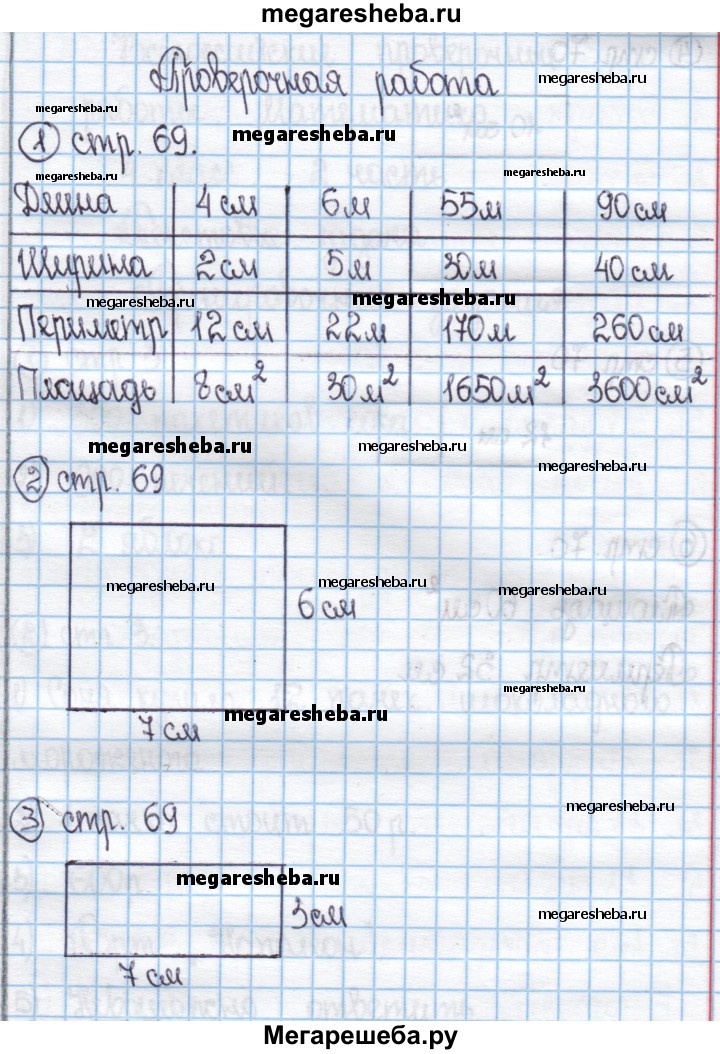 megaresheba.ru
Проверочная работа
megaresheba.ru
megaresheba.ru
megaresheba.ru
1 стр. 69.
megaresheba.ru
Длина 4 см 6м 55м 90 см
Ширина 2 см 5м 30м 40 см
megaresheba.ru
megaresheba.ru
Периметр 12 см 22м 170м 260 см
Площадь 8 см² 30м² 1650м² 3600 см²
megaresheba.ru
megaresheba.ru
megaresheba.ru
2 стр. 69
megaresheba.ru
megaresheba.ru
megaresheba.ru
6 см
megaresheba.ru
7 см
megaresheba.ru
3 стр. 69
megaresheba.ru
megaresheba.ru
3 см
megaresheba.ru
7 см
Мегарешеба.ру